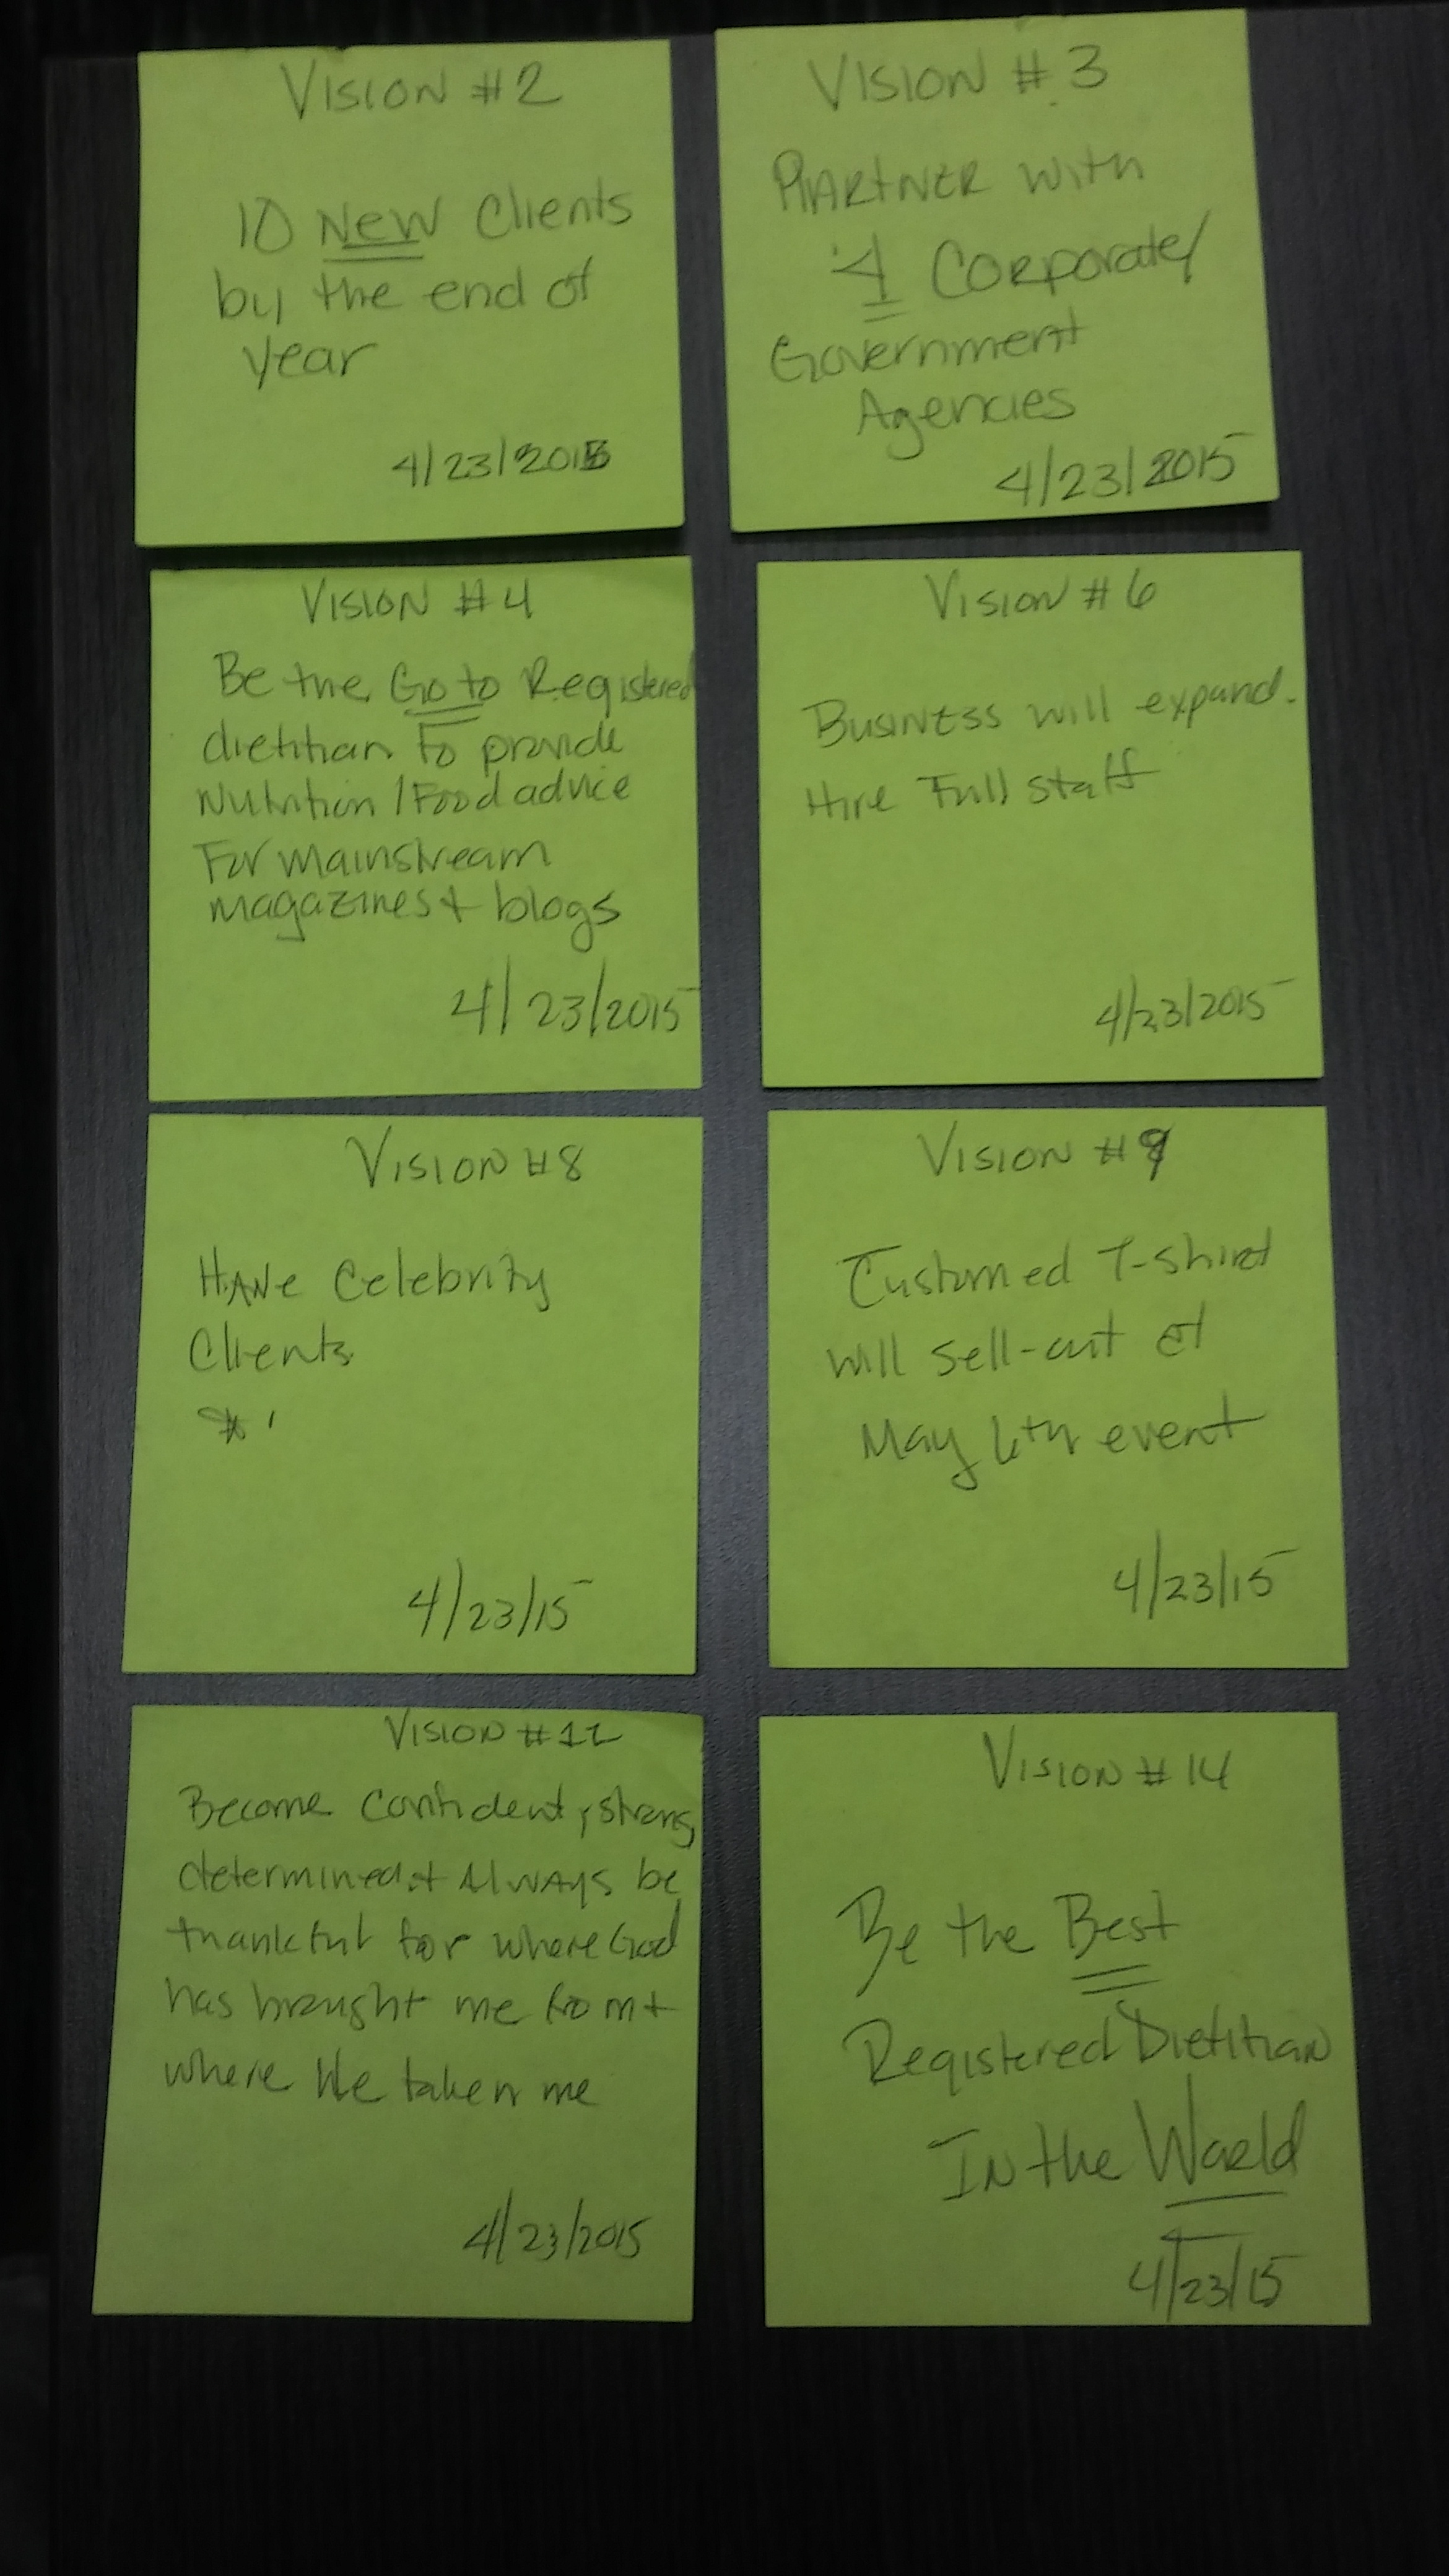 VISION #2
10 New Clients
by the end of
year
4/23/2015
VISION #3
PARTNER with
4 Corporate/
Government
Agencies
4/23/2015
VISION #4
Be the Go to Registered
dietitian to provide
Nutrition / Food advice
For mainstream
magazines + blogs
4/23/2015
VISION #6
Business will expand.
Hire Full staff
4/23/2015
VISION #8
HAVe Celebrity
Clients
4/23/15
VISION #9
Customed T-shirt
will sell-out at
May 6th event
4/23/15
VISION #12
Become confident, strong,
determined + Always be
thankful for where God
has brought me from +
where He taken me
4/23/2015
VISION #14
Be the Best
Registered Dietitian
IN the World
4/23/15